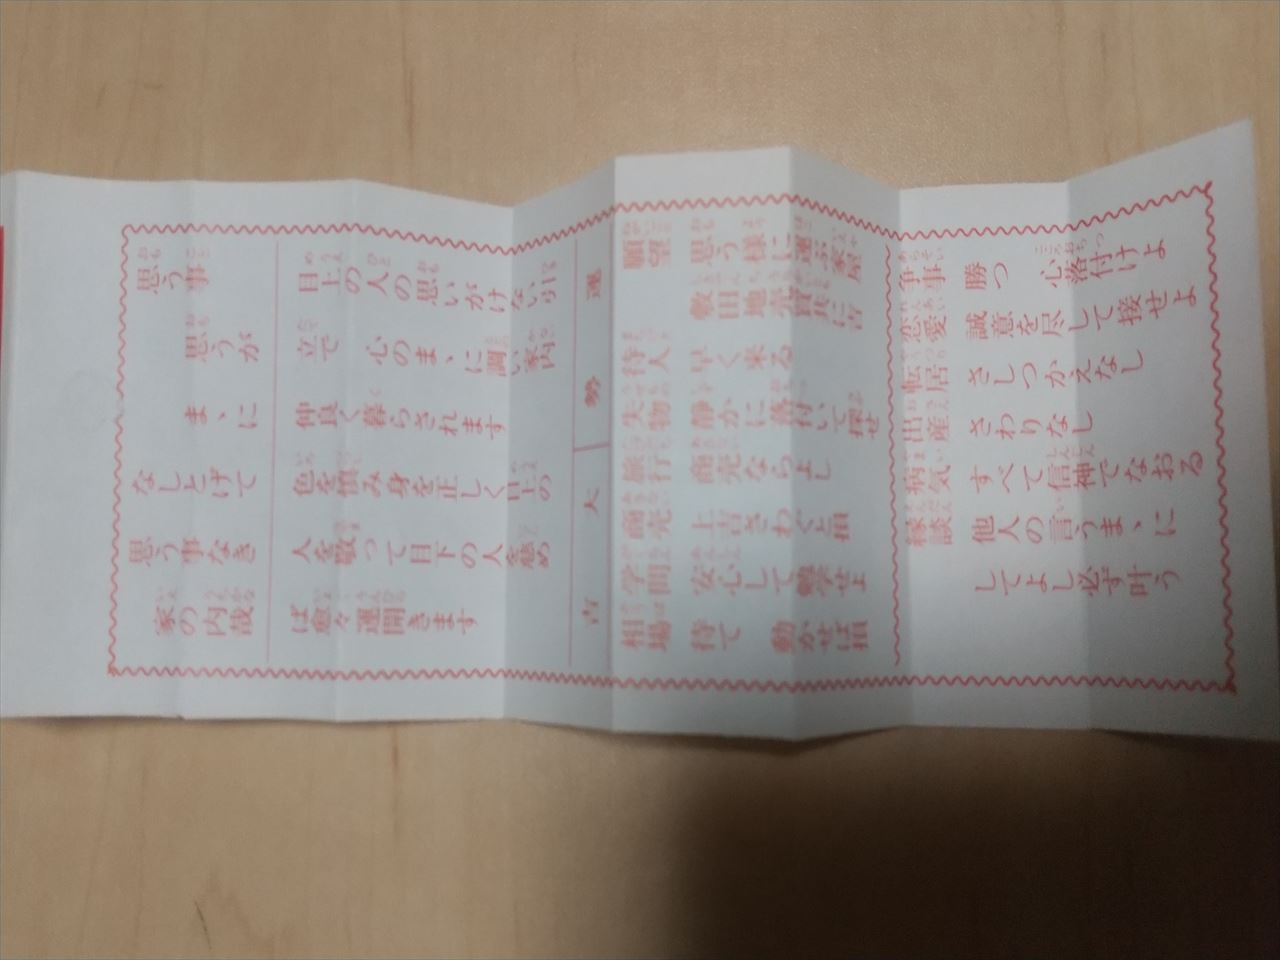 思う事
思うが
まゝに
なしとげて
思う事なき
家の内哉
目上の人の思いがけない引
立で 心のまゝに調い家内
仲良く暮らされます
色を慎み身を正しく目上の
人を敬って目下の人を慈め
ば愈々運開きます
運勢 大吉
願望 思う様に運ぶ家屋
敷田地売買共に吉
待人 早く来る
失物 静かに落付いて探せ
旅行 商売ならよし
商売 上吉さわぐと損
学問 安心して勉学せよ
相場 待て 動かせば損
争事 勝つ 心落付けよ
恋愛 誠意を尽して接せよ
転居 さしつかえなし
出産 さわりなし
病気 すべて信神でなおる
縁談 他人の言うまゝに
してよし必ず叶う